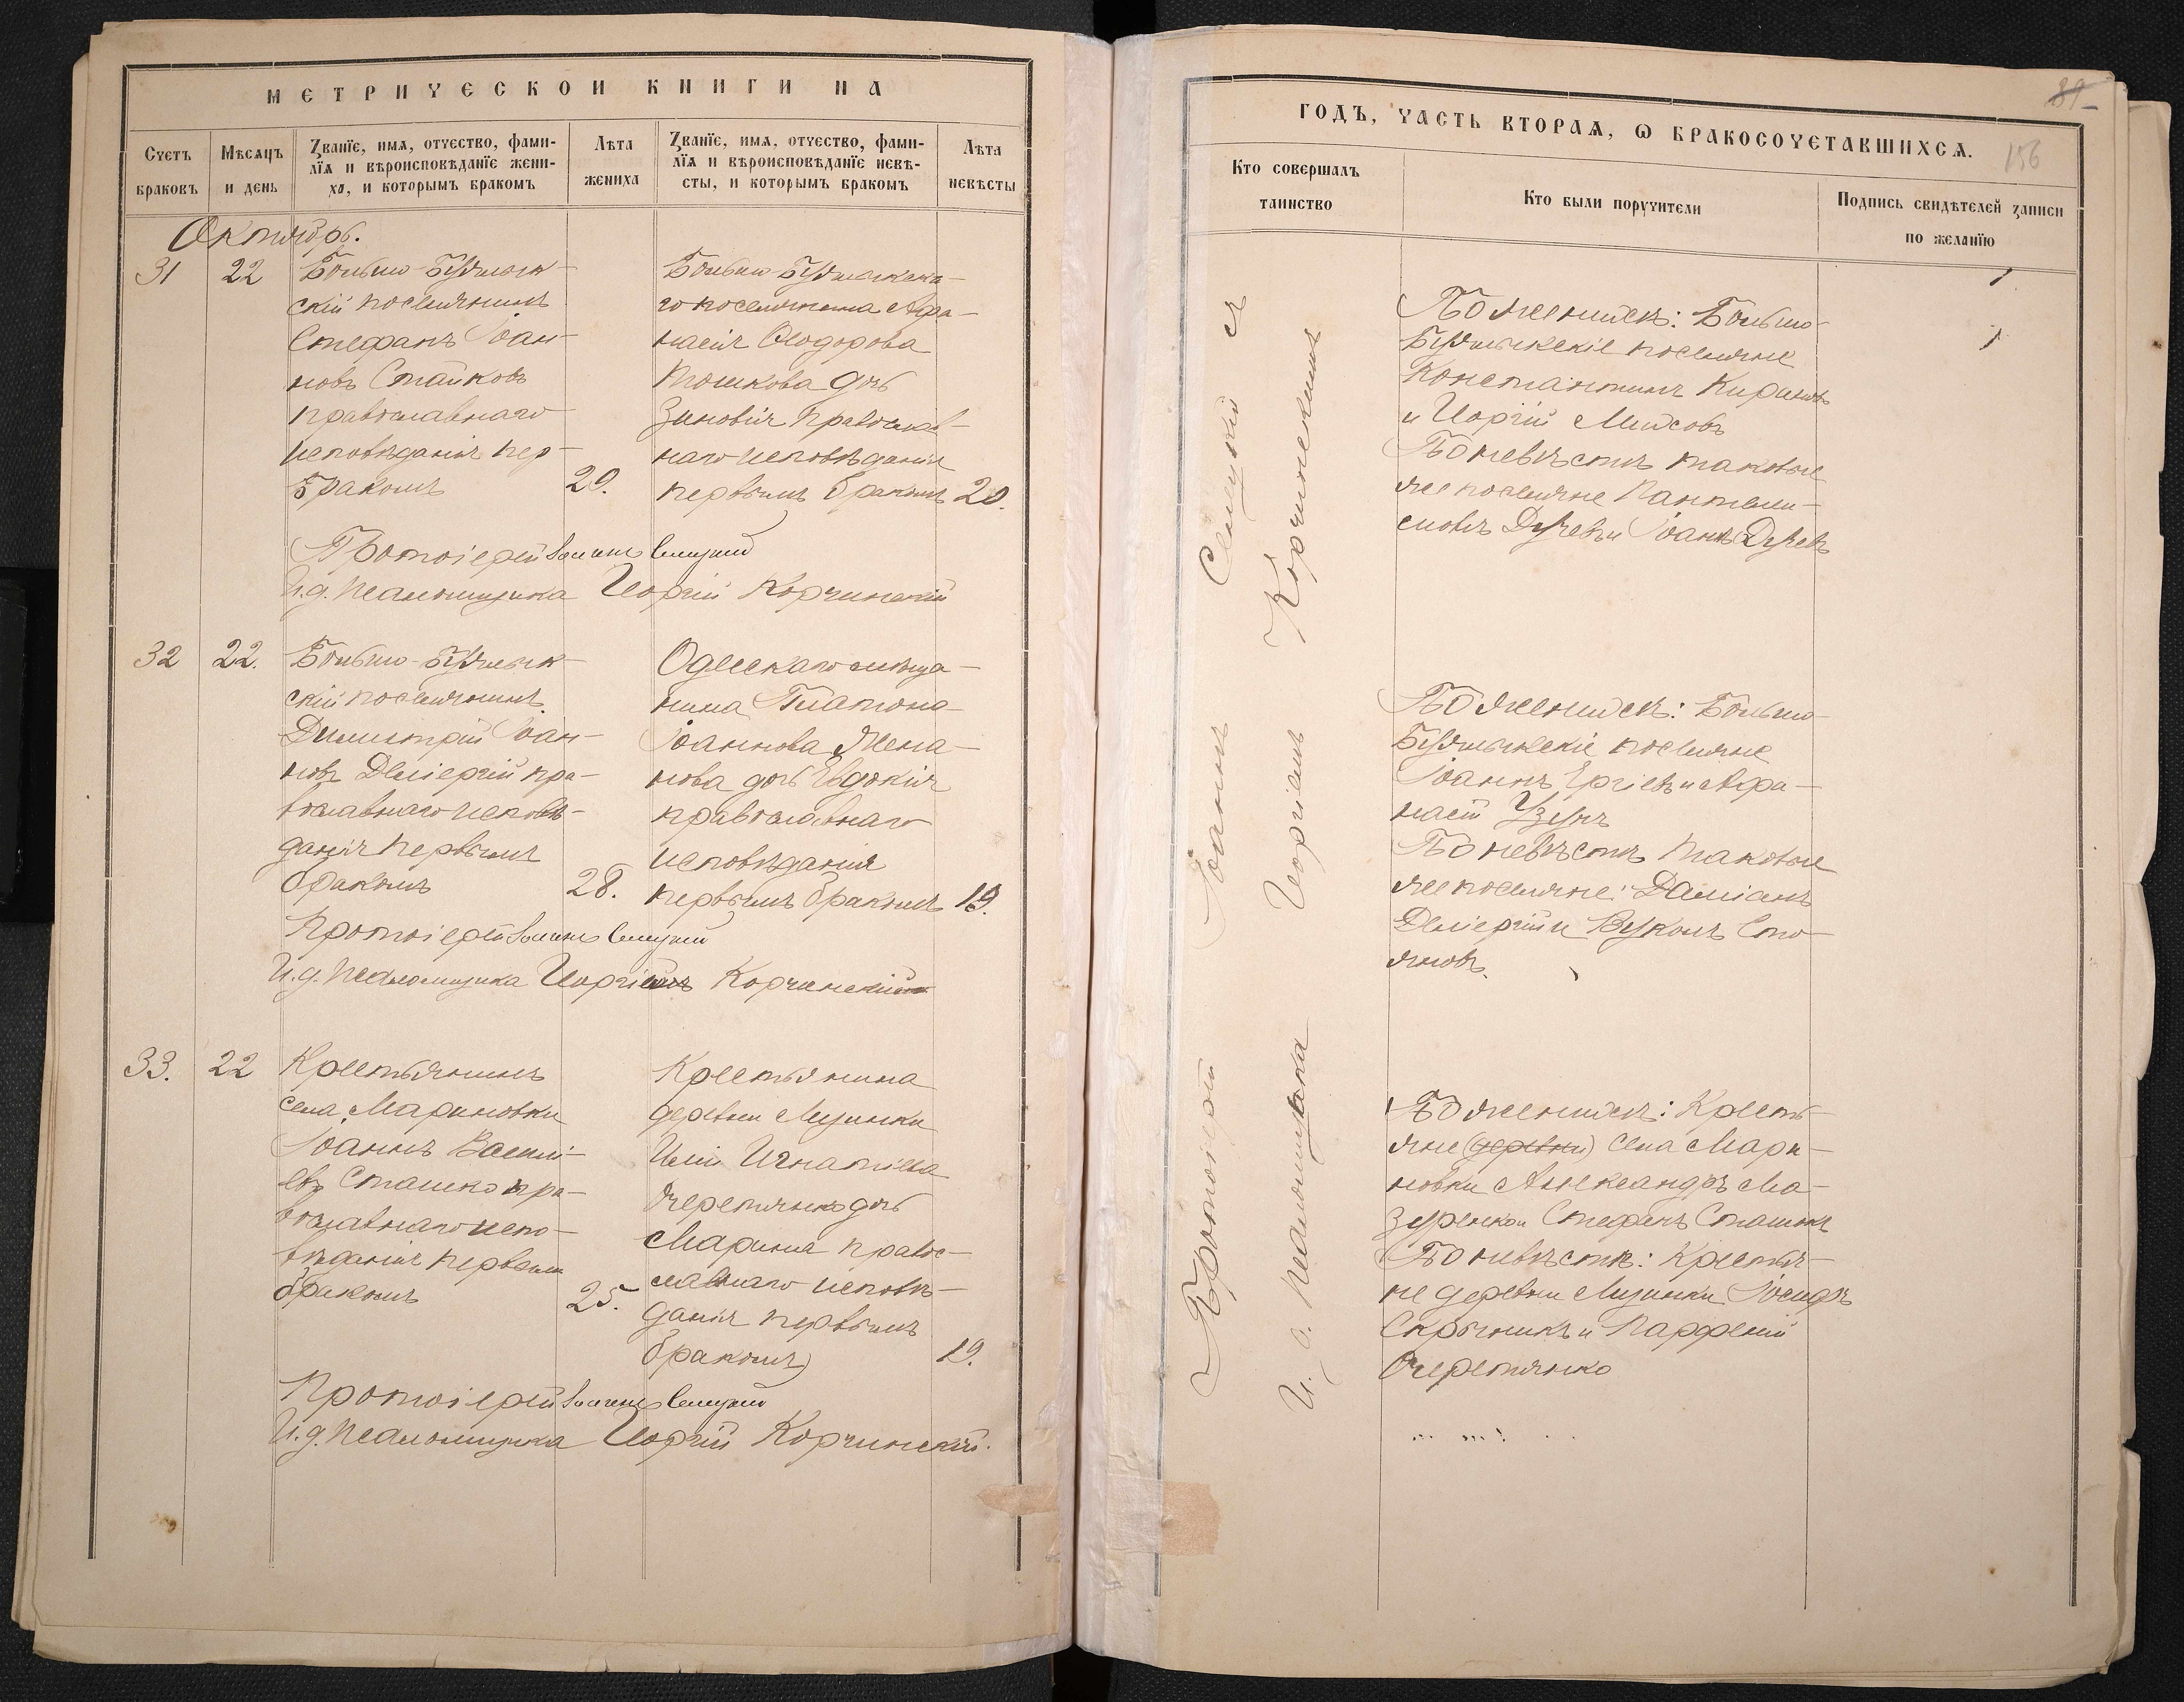 МЕТРИЧЕСКОЙ КНИГИ НА
Счетъ браковъ
Мѣсяцъ и день
Званїе, имѧ, отчество, фами-
лїѧ и вѣроисповѣданїе жени-
ха, и которымъ бракомъ
Лѣта жениха
Званїе, имѧ, отчество, фами-
лїѧ и вѣроисповѣданїе невѣ-
сты, и которымъ бракомъ
Лѣта невѣсты
Октябрь.
31
22
Больше-Буялык-
скій поселянинъ
Стефанъ Іоан-
новъ Стайковъ
православнаго
исповѣданія пер-
бракомъ
29.
Больше-Буялыкска-
го поселянина Афа-
насія Ѳеодорова
Тошкова дочь
Зиновія православ-
наго исповѣданія
первымъ бракомъ
20.
Протоіерей Іоаннъ Селецкій
И.д. псаломщика Георгій Корчинскій
32
22.
Больше-Буялык-
скій поселянинъ
Димитрій Іоан-
новъ Дміергій пра-
вославнаго исповѣ-
данія первымъ
бракомъ
28.
Одесскаго мѣща-
нина Платона
Іоаннова Жена-
нова дочь Евдокія
православнаго
исповѣданія
первымъ бракомъ
19.
Протоіерей Іоаннъ Селецкій
И.д. псаломщика Георгій Корчинскій
33.
22
Крестьянинъ
села Мариновки
Іоаннъ Васили-
евъ Сташко пра-
вославнаго испо-
вѣданія первымъ
бракомъ
25.
Крестьянина
деревни
Иліи Игнатіева
Очеретянко дочь
Марина правос-
лавнаго исповѣ-
данія первымъ
бракомъ
19.
Протоіерей Іоаннъ Селецкій
И.д. псаломщика Георгій Корчинскій.
89
156
ГОДЪ, ЧАСТЬ ВТОРАѦ, Ѡ БРАКОСОЧЕТАВШИХСѦ.
Кто совершалъ
таинство
Кто были поручители
Подпись свидѣтелей записи
по желанїю
Протоіерей Іоаннъ Селецкій съ
И. д. псаломщика Георгіемъ Корчинскимъ
По женихѣ: Больше-
Буялыкскіе поселяне
Константинъ Кирановъ
и Георгій
По невѣстѣ таковые
же поселяне Пантели-
Іоаннъ
По женихѣ: Больше-
Буялыкскіе поселяне
Іоаннъ Ергіевъ и Афа-
насій Узунъ
По невѣстѣ таковые
же поселяне: Даміанъ
Дміергій и Вуколъ Сто-
яновъ.
По женихѣ: Кресть-
яне (деревни) села Мари-
новки Александръ Ма-
зуренко и Стефанъ Сташко
По невѣстѣ: Крестья-
не деревни Іосифъ
Скрыникъ и Парфеній
Очеретянко